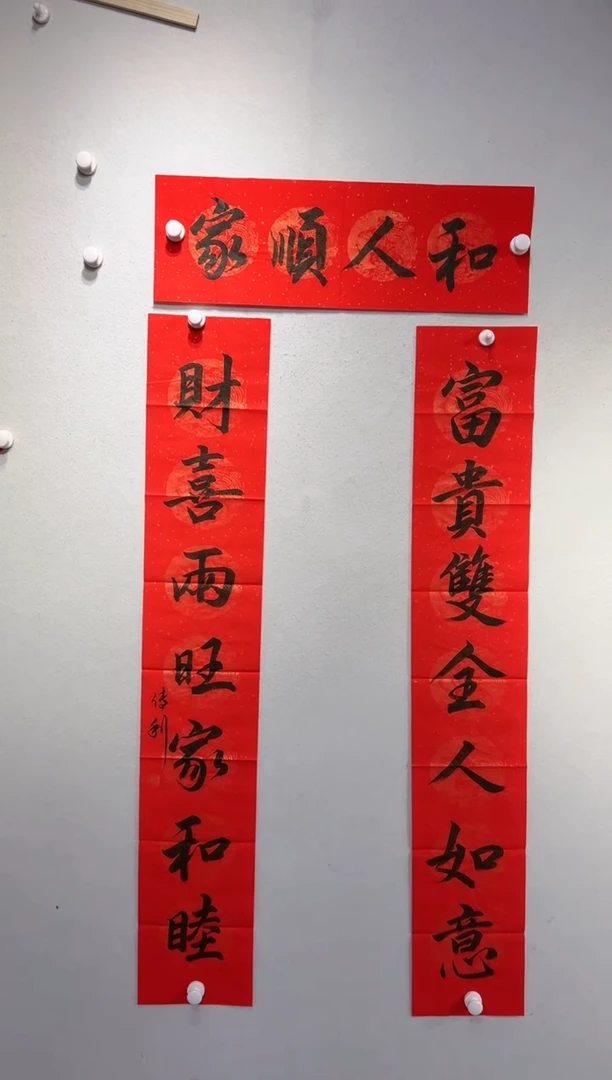 家順人和
富貴雙全人如意
財喜兩旺家和睦
利